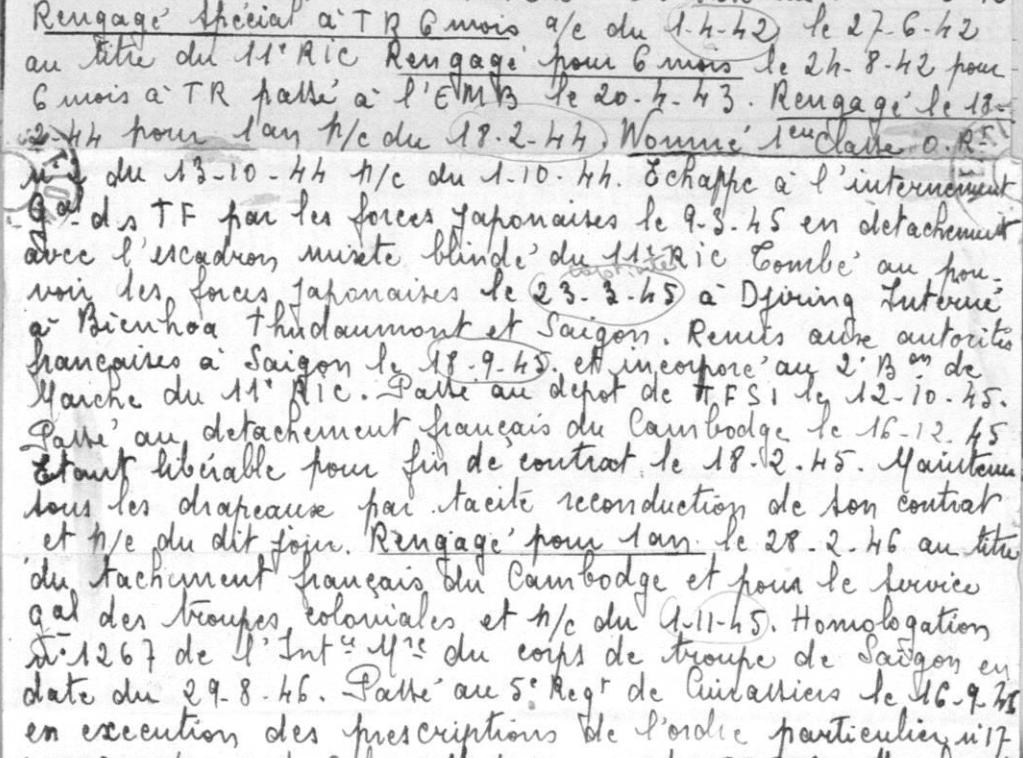 Rengagé spécial à TR 6 mois a/c du 1-4-42 le 27-6-42
au titre du 11e RIC Rengagé pour 6 mois le 24-8-42 pour
6 mois à TR passé à l'EMB le 20-4-43. Rengagé le 18-
2-44 pour 1an p/c du 18-2-44. Nommé 1ere Classe O.Rt
du 13-10-44 p/c du 1-10-44. Echappe à l'internement
Gal ds TF par les forces Japonaises le 9-3-45 en detachement
avec l'escadron mixte blindé du 11e RIC Tombé au pou-
voir les forces japonaises le 23-3-45 à Djiring Interné
à Bienhoa thudaumont et Saïgon. Remis aux autorités
françaises à Saïgon le 18-9-45. et incorporé au 2e Bon de
Marche du 11e RIC. Passé au dépot de TFSI le 12-10-45.
Passé au detachement français du Cambodge le 16-12.45
Etant libérable pour fin de contrat le 18-2-45. Maintenu
sous les drapeaux par tacite reconduction de son contrat
et p/c du dit jour. Rengagé pour 1an. le 28-2-46 au titre
du tachement français du Cambodge et pour le service
gal des troupes coloniales et p/c du 1-11-45. Homologation
n° 1267 de l'Intce Mre du corps de troupe de Saïgon en
date du 29-8-46. Passé au 5e Regt de Cuirassiers le 16-9-45
en execution des prescriptions de l'ordre particulier n°17